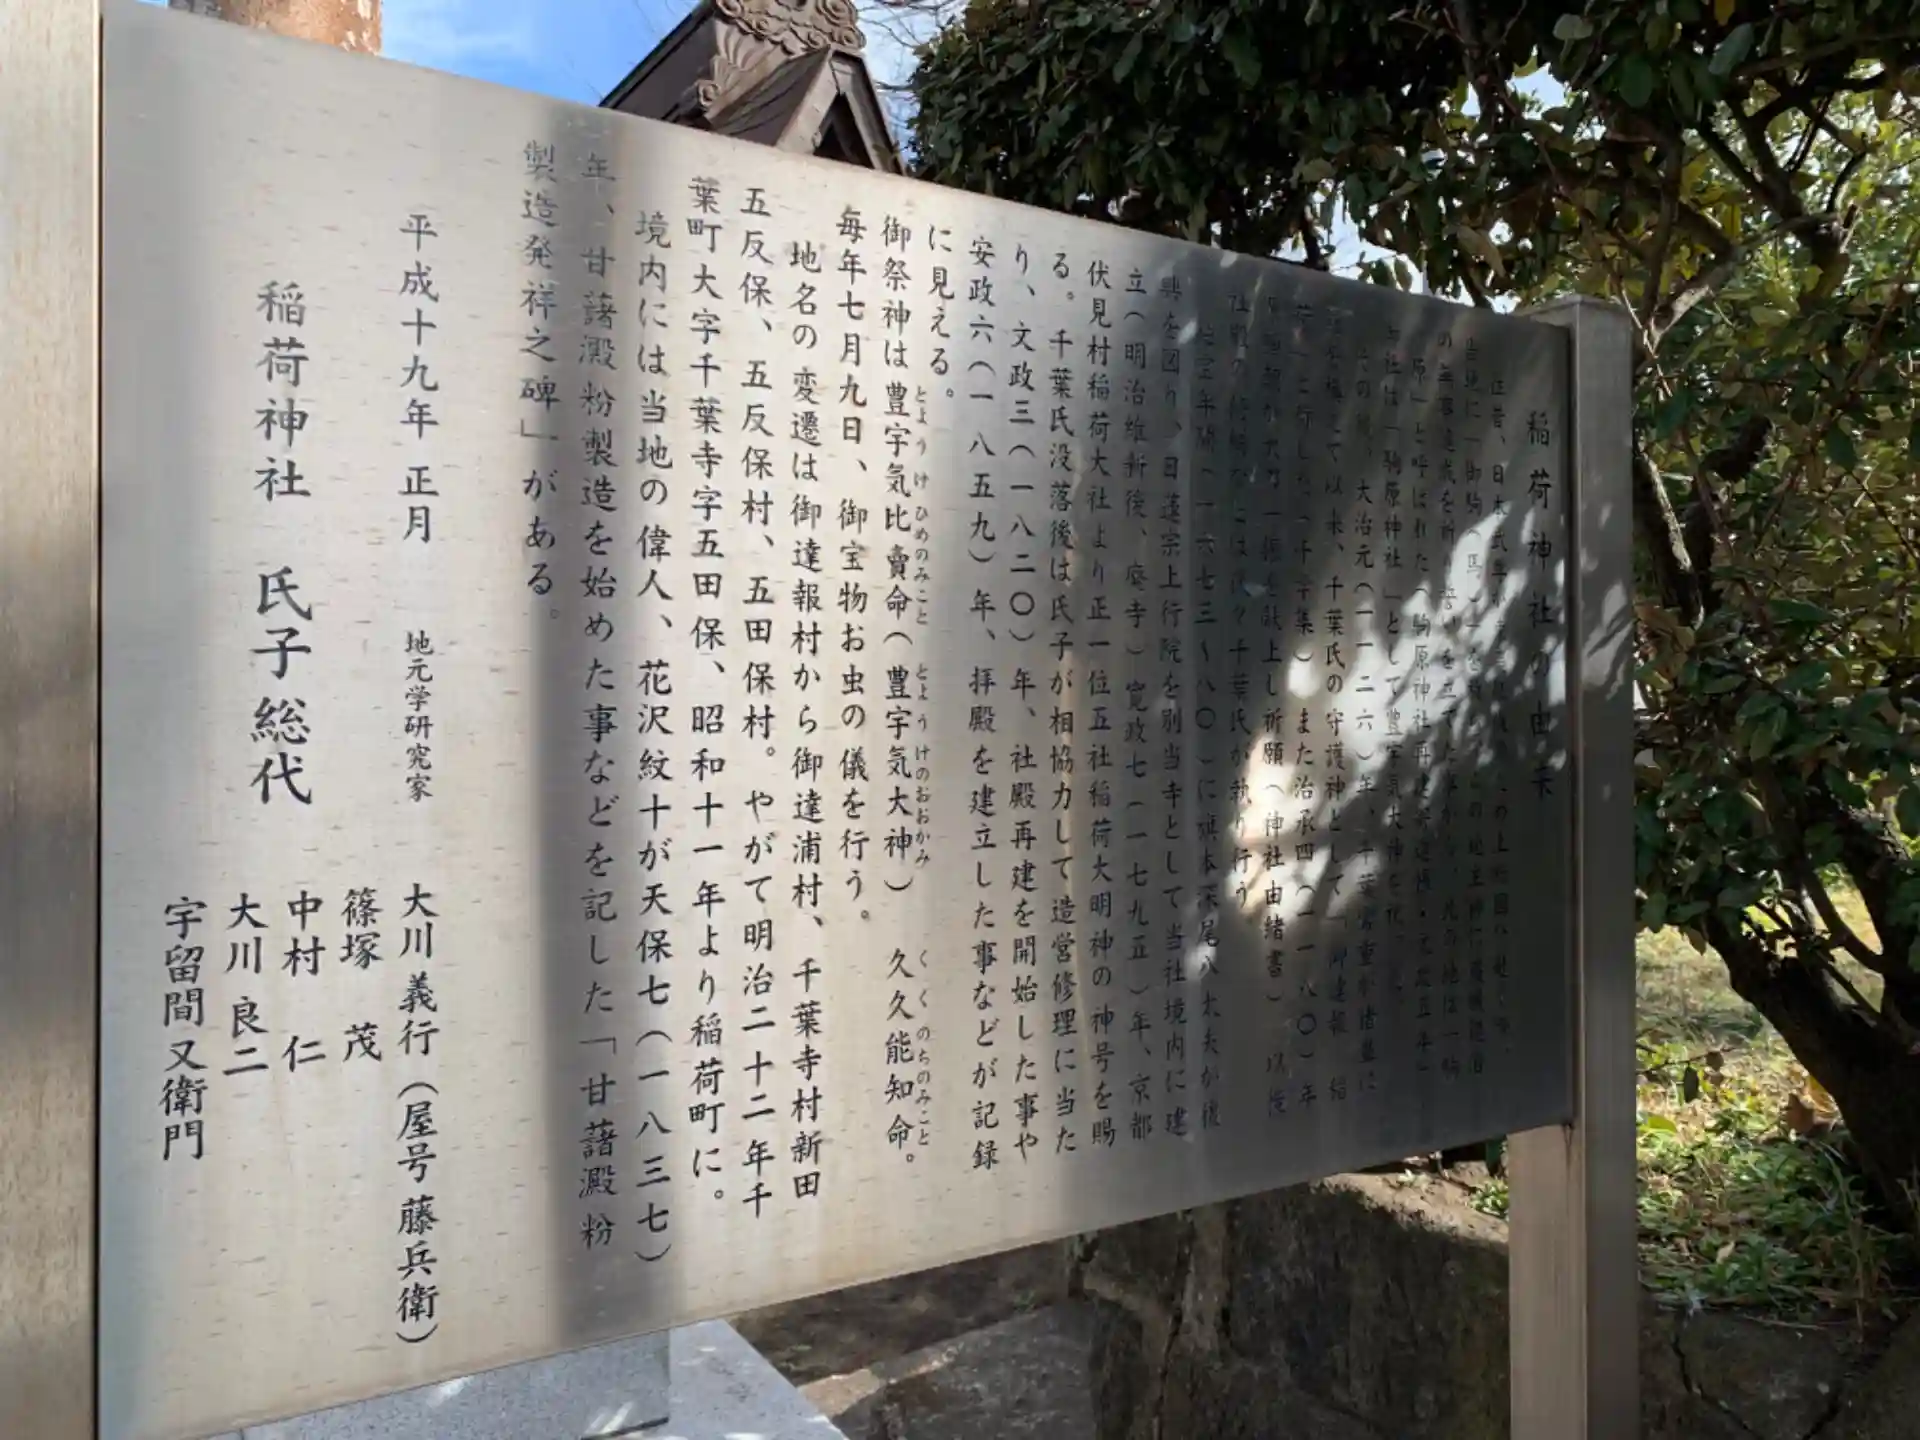 稲荷神社の由来
当社は「駒原神社」として豊宇気大神を
大治元(一一二六)年、千葉常重が
以来、千葉氏の守護神として「御達報稲
荷」と 「千学集」)また治承四(一一八〇)年
を献上し祈願(神社由緒書)以後
社殿の には代々千葉氏が執り行う
延宝年間(一六七三~八〇)に旗本深尾八太夫が復
興を図り、日蓮宗上行院を別当寺として当社境内に建
立(明治維新後、廃寺)寛政七(一七九五)年、京都
伏見村稲荷大社より正一位五社稲荷大明神の神号を賜
る。千葉氏没落後は氏子が相協力して造営修理に当た
り、文政三(一八二〇)年、社殿再建を開始した事や
安政六(一八五九)年、拝殿を建立した事などが記録
に見える。
御祭神は豊宇気比賣命(豊宇気大神) 久久能知命。
とようけひめのみこと とようけのおおかみ くくのちのみこと
毎年七月九日、御宝物お虫の儀を行う。
地名の変遷は御達報村から御達浦村、千葉寺村新田
五反保、五反保村、五田保村。やがて明治二十二年千
葉町大字千葉寺字五田保、昭和十一年より稲荷町に。
境内には当地の偉人、花沢紋十が天保七(一八三七)
年、甘藷澱粉製造を始めた事などを記した「甘藷澱粉
製造発祥之碑」がある。
平成十九年 正月
地元学研究家 大川義行(屋号藤兵衛)
稲荷神社 氏子総代
篠塚 茂
中村 仁
大川良二
宇留間又衛門